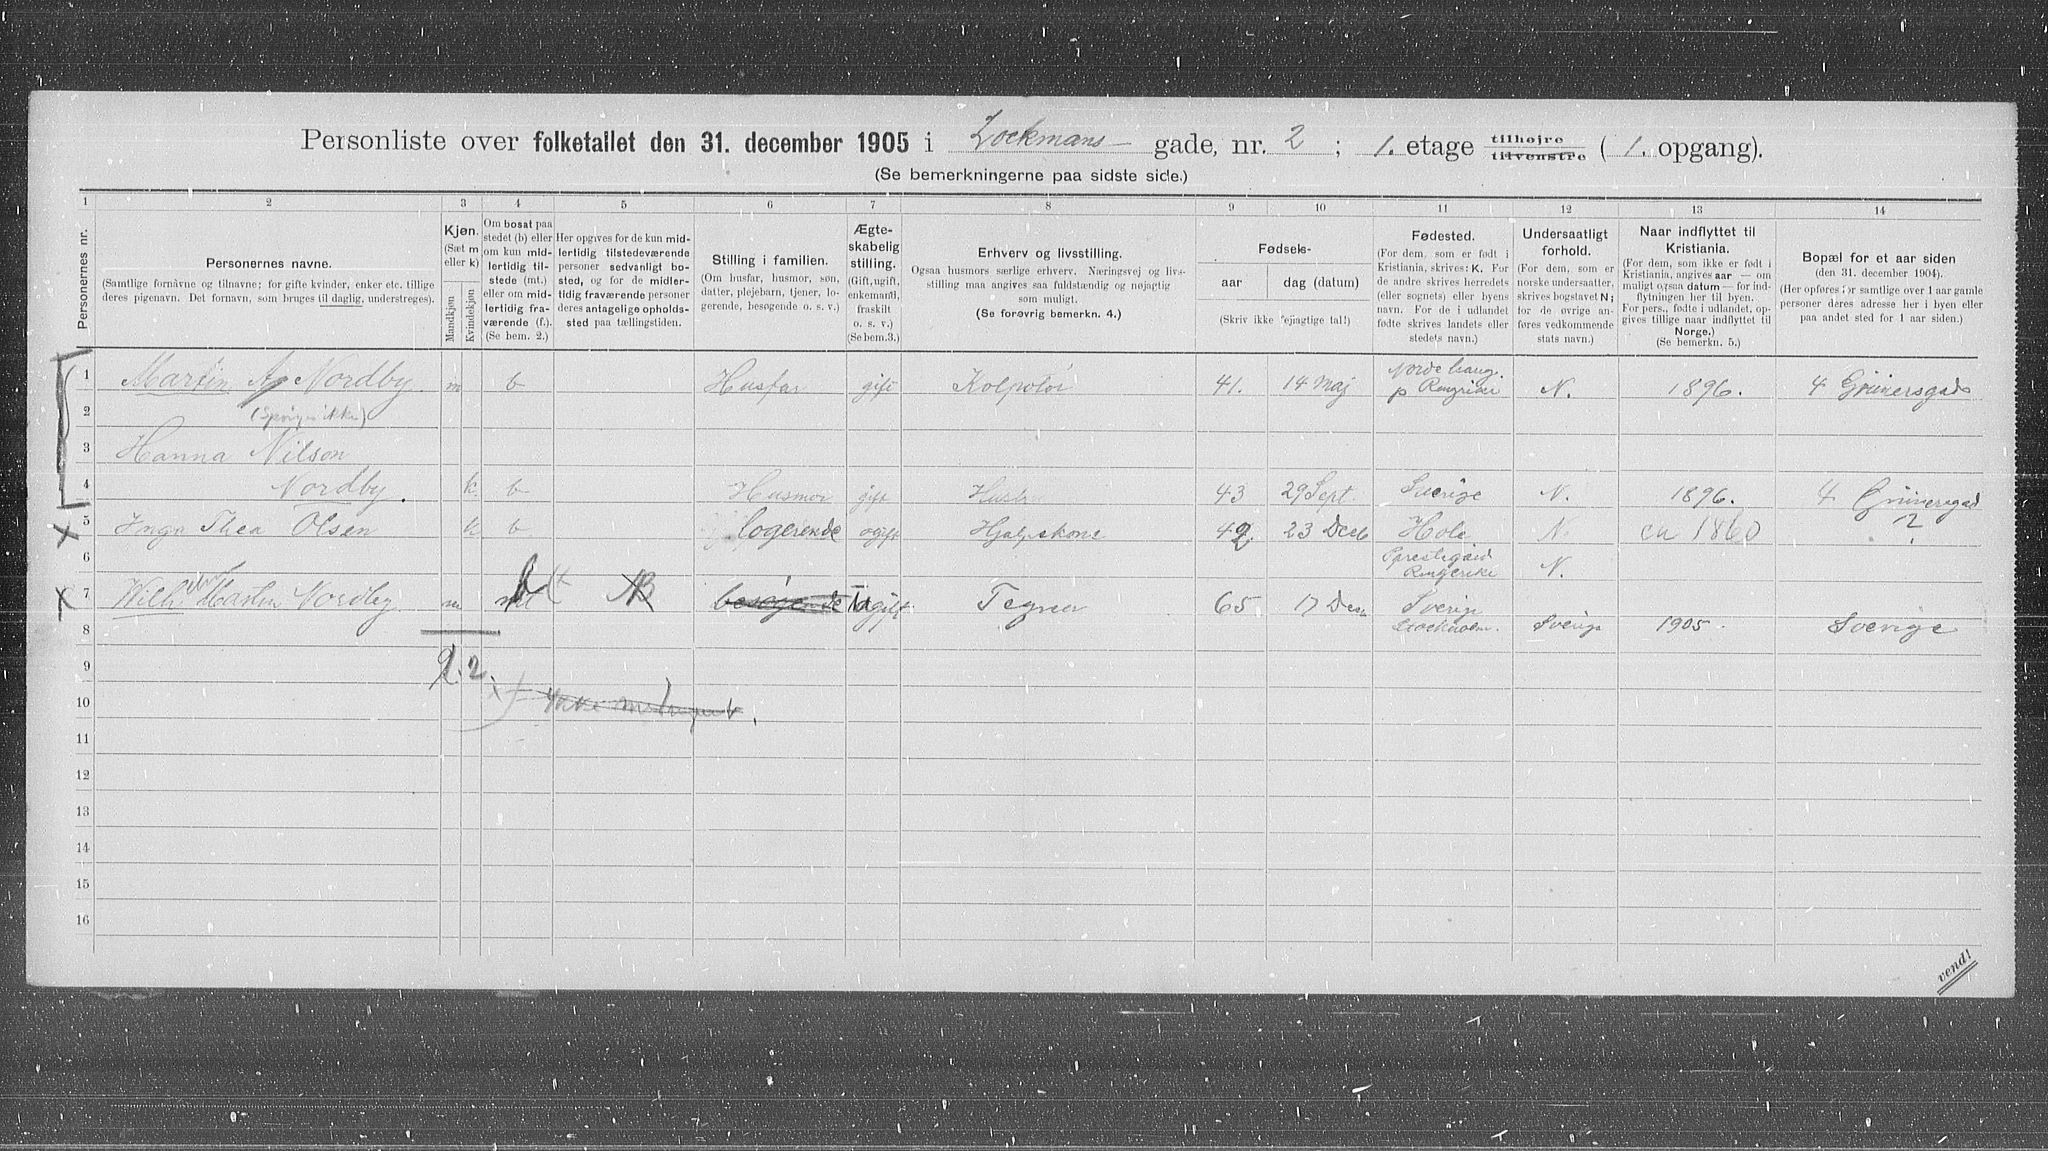 Personliste over folketallet den 31. december 1905 i Zockmans gade, nr. 2 ; 1. etage tilhøjre tilvenstre ( 1. opgang).
(Se bemerkningerne paa sidste side.)
1 2 3 4 5 6 7 8 9 10 11 12 13 14
Personernes nr.
Personernes navne.
(Samtlige fornavne og tilnavne; for gifte kvinder, enker etc. tillige deres pigenavn. Det fornavn, som bruges til daglig, understreges).
Kjøn.
(Sæt m eller k)
Mandkjøn
Kvindekjøn
Om bosat paa stedet (b) eller om kun midlertidig tilstede (mt.) eller om midlertidig fraværende (f.). (Se bem. 2.)
Her opgives for de kun midlertidig tilstedeværende personer sedvanlig bosted, og for de midlertidig fraværende personer deres antagelige opholdssted paa tællingstiden.
Stilling i familien.
(Om husfar, husmor, søn, datter, plejebarn, tjener, logerende, besøgende o. s. v.)
Ægteskabelig stilling.
(Gift, ugift, enkemand, fraskilt o. s. v.)
(Se bem. 3.)
Erhverv og livsstilling.
Ogsaa husmors særlige erhverv. Næringsvej og livsstilling maa angives saa fuldstændig og nøjagtig som muligt.
(Se forøvrig bemerkn. 4.)
Fødsels-
aar
dag (datum)
(Skriv ikke fejlagtige tal!)
Fødested.
(For dem, som er født i Kristiania, skrives: K. For de andre skrives herredets (eller sognets) eller byens navn. For de i udlandet fødte skrives landets eller stedets navn.)
Undersaatligt forhold.
(For dem, som er norske undersaatter, skrives bogstavet N; for de øvrige anføres vedkommende stats navn.)
Naar indflyttet til Kristiania.
(For dem, som ikke er født i Kristiania, angives aar — om muligt ogsaa datum — for indflytningen her til byen. For pers., fødte i udlandet, opgives tillige naar indflyttet til Norge.)
(Se bemerkn. 5.)
Bopæl for et aar siden
(den 31. december 1904).
(Her opføres for samtlige over 1 aar gamle personer deres adresse her i byen eller paa andet sted for 1 aar siden.)
1 Martin A Nordby m b Husfar gift 41. 14 Maj Norderhaug p Ringerike N. 1896. 4 Grünersgade
2
3 Hanna Nilson
4 Nordby. k b Husmor gift 43 29 Sept. Sverige N. 1896. 4 Grünersgad
5 Inga Thea Olsen k b logerende ugift 42 23 Decb Hole N. ca 1860 ?
6 Præstegaid Ringerike N.
7 Wilh Martin Nordby m mt b besøgende ugift Tegner 65 17 Dec Sverige
8 Stockholm. Sverige 1905. Sverige
9 2. 2.
10
11
12
13
14
15
16
vend!